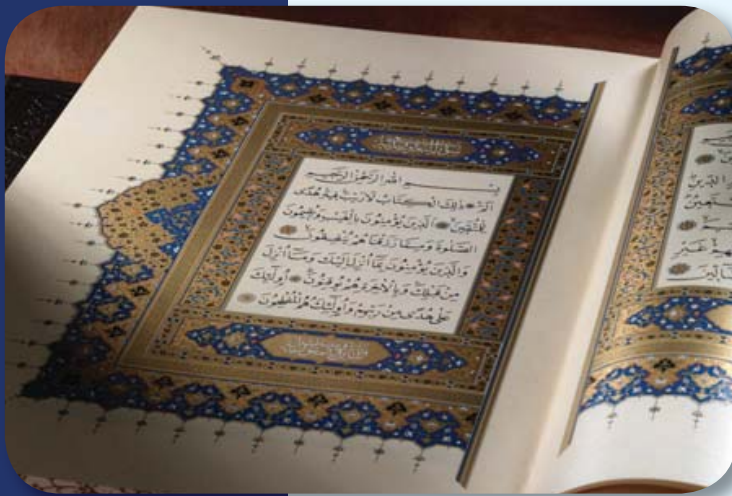 بِسْمِ اللّٰهِ الرَّحْمٰنِ الرَّحِيمِ
الٓمٓ ذٰلِكَ الْكِتَابُ لَا رَيْبَ فِيهِ هُدًى
لِلْمُتَّقِينَ الَّذِينَ يُؤْمِنُونَ بِالْغَيْبِ وَيُقِيمُونَ
الصَّلٰوةَ وَمِمَّا رَزَقْنَاهُمْ يُنْفِقُونَ
وَالَّذِينَ يُؤْمِنُونَ بِمَا أُنْزِلَ إِلَيْكَ وَمَا أُنْزِلَ
مِنْ قَبْلِكَ وَبِالْاٰخِرَةِ هُمْ يُوقِنُونَ أُولٰئِكَ
عَلٰى هُدًى مِنْ رَبِّهِمْ وَأُولٰئِكَ هُمُ الْمُفْلِحُونَ